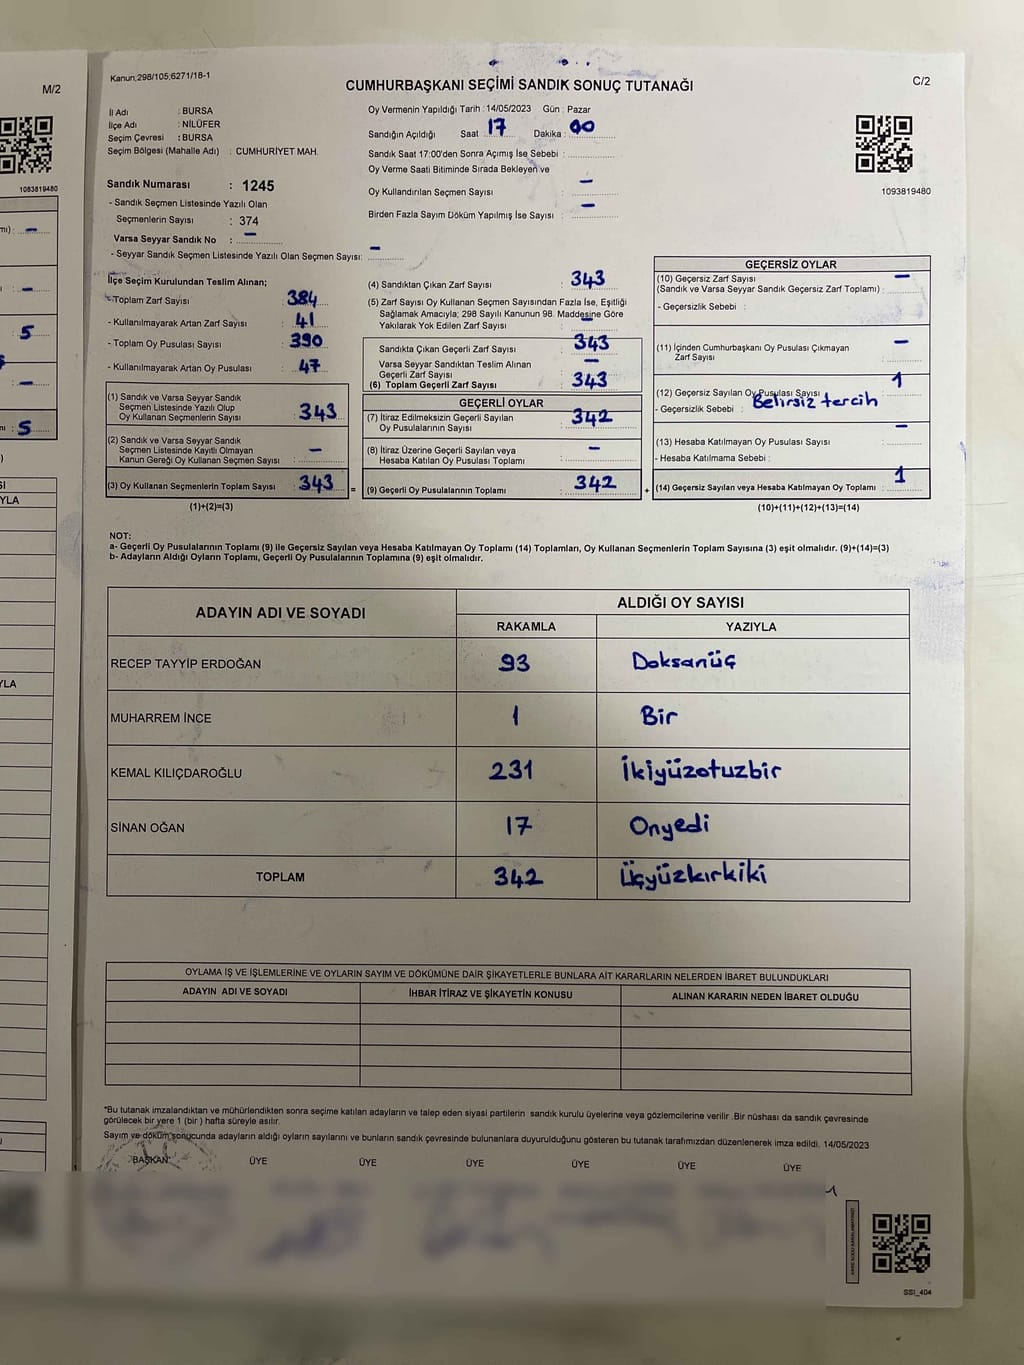 M/2
1083819480
mı) : -
: -
5
: -
: 5
YLA
YLA
Kanun;298/105;6271/18-1
CUMHURBAŞKANI SEÇİMİ SANDIK SONUÇ TUTANAĞI
C/2
İl Adı : BURSA
İlçe Adı : NİLÜFER
Seçim Çevresi : BURSA
Seçim Bölgesi (Mahalle Adı) : CUMHURİYET MAH.
Sandık Numarası : 1245
- Sandık Seçmen Listesinde Yazılı Olan
Seçmenlerin Sayısı : 374
Varsa Seyyar Sandık No : -
- Seyyar Sandık Seçmen Listesinde Yazılı Olan Seçmen Sayısı: -
Oy Vermenin Yapıldığı Tarih : 14/05/2023 Gün : Pazar
Sandığın Açıldığı Saat 17 Dakika : 00
Sandık Saat 17:00'den Sonra Açımış İse Sebebi :
Oy Verme Saati Bitiminde Sırada Bekleyen ve
Oy Kullandırılan Seçmen Sayısı : -
Birden Fazla Sayım Döküm Yapılmış İse Sayısı : -
1093819480
İlçe Seçim Kurulundan Teslim Alınan;
- Toplam Zarf Sayısı : 384
- Kullanılmayarak Artan Zarf Sayısı : 41
- Toplam Oy Pusulası Sayısı : 390
- Kullanılmayarak Artan Oy Pusulası : 47
(1) Sandık ve Varsa Seyyar Sandık
Seçmen Listesinde Yazılı Olup
Oy Kullanan Seçmenlerin Sayısı : 343
(2) Sandık ve Varsa Seyyar Sandık
Seçmen Listesinde Kayıtlı Olmayan
Kanun Gereği Oy Kullanan Seçmen Sayısı : -
(3) Oy Kullanan Seçmenlerin Toplam Sayısı : 343
(1)+(2)=(3)
(4) Sandıktan Çıkan Zarf Sayısı : 343
(5) Zarf Sayısı Oy Kullanan Seçmen Sayısından Fazla İse, Eşitliği
Sağlamak Amacıyla; 298 Sayılı Kanunun 98. Maddesine Göre
Yakılarak Yok Edilen Zarf Sayısı : -
Sandıkta Çıkan Geçerli Zarf Sayısı : 343
Varsa Seyyar Sandıktan Teslim Alınan
Geçerli Zarf Sayısı : -
(6) Toplam Geçerli Zarf Sayısı : 343
GEÇERLİ OYLAR
(7) İtiraz Edilmeksizin Geçerli Sayılan
Oy Pusulalarının Sayısı : 342
(8) İtiraz Üzerine Geçerli Sayılan veya
Hesaba Katılan Oy Pusulası Toplamı : -
= (9) Geçerli Oy Pusulalarının Toplamı : 342 +
GEÇERSİZ OYLAR
(10) Geçersiz Zarf Sayısı
(Sandık ve Varsa Seyyar Sandık Geçersiz Zarf Toplamı) : -
- Geçersizlik Sebebi :
(11) İçinden Cumhurbaşkanı Oy Pusulası Çıkmayan
Zarf Sayısı : -
(12) Geçersiz Sayılan Oy Pusulası Sayısı : 1
- Geçersizlik Sebebi : Belirsiz tercih
(13) Hesaba Katılmayan Oy Pusulası Sayısı : -
- Hesaba Katılmama Sebebi :
(14) Geçersiz Sayılan veya Hesaba Katılmayan Oy Toplamı : 1
(10)+(11)+(12)+(13)=(14)
NOT:
a- Geçerli Oy Pusulalarının Toplamı (9) ile Geçersiz Sayılan veya Hesaba Katılmayan Oy Toplamı (14) Toplamları, Oy Kullanan Seçmenlerin Toplam Sayısına (3) eşit olmalıdır. (9)+(14)=(3)
b- Adayların Aldığı Oyların Toplamı, Geçerli Oy Pusulalarının Toplamına (9) eşit olmalıdır.
ADAYIN ADI VE SOYADI ALDIĞI OY SAYISI
RAKAMLA YAZIYLA
RECEP TAYYİP ERDOĞAN 93 Doksanüç
MUHARREM İNCE 1 Bir
KEMAL KILIÇDAROĞLU 231 İkiyüzotuzbir
SİNAN OĞAN 17 Onyedi
TOPLAM 342 Üçyüzkırkiki
OYLAMA İŞ VE İŞLEMLERİNE VE OYLARIN SAYIM VE DÖKÜMÜNE DAİR ŞİKAYETLERLE BUNLARA AİT KARARLARIN NELERDEN İBARET BULUNDUKLARI
ADAYIN ADI VE SOYADI İHBAR İTİRAZ VE ŞİKAYETİN KONUSU ALINAN KARARIN NEDEN İBARET OLDUĞU
*Bu tutanak imzalandıktan ve mühürlendikten sonra seçime katılan adayların ve talep eden siyasi partilerin sandık kurulu üyelerine veya gözlemcilerine verilir .Bir nüshası da sandık çevresinde
görülecek bir yere 1 (bir ) hafta süreyle asılır.
Sayım ve döküm sonucunda adayların aldığı oyların sayılarını ve bunların sandık çevresinde bulunanlara duyurulduğunu gösteren bu tutanak tarafımızdan düzenlenerek imza edildi. 14/05/2023
BAŞKAN ÜYE ÜYE ÜYE ÜYE ÜYE ÜYE
SSI_404